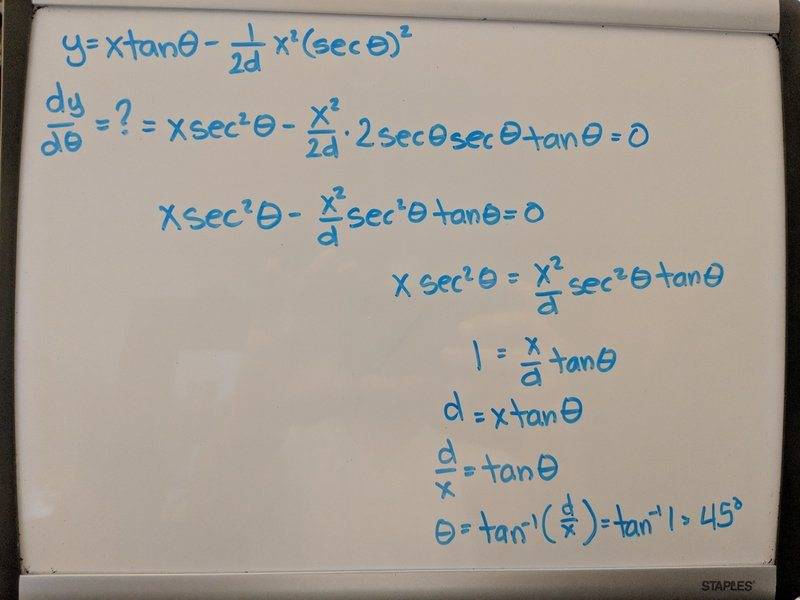 y = x tanθ - 1/2d x² (sec θ)²
dy/dθ = ? = x sec²θ - x²/2d · 2 secθ sec θ tan θ = 0
x sec²θ - x²/d sec²θ tanθ = 0
x sec²θ = x²/d sec²θ tanθ
1 = x/d tanθ
d = x tanθ
d/x = tanθ
θ = tan⁻¹(d/x) = tan⁻¹ 1 = 45°
STAPLES